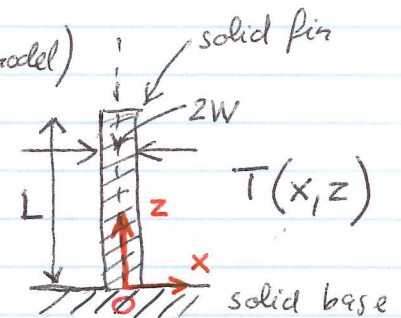 model)
solid fin
2W
L
T(x,z)
z
x
O
solid base